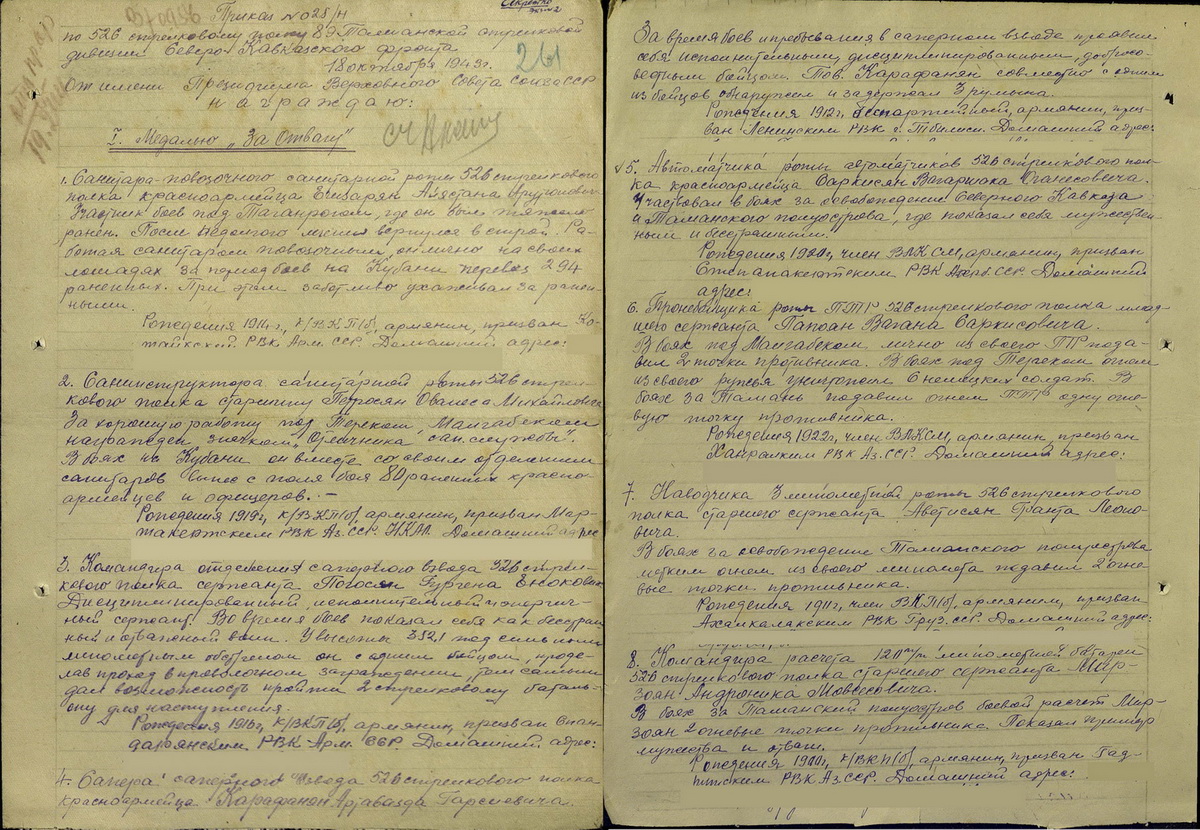 Приказ №028/н
по 526 стрелковому полку 89 Таманской стрелковой
дивизии Северо-Кавказского фронта
18 октября 1943г.
261
От имени Президиума Верховного Совета Союза ССР
награждаю:
I. Медалью "За Отвагу"
1. Санитара-повозочного санитарной роты 526 стрелкового
полка красноармейца Айястана Арутюновича
Участник боев под Таганрогом, где он был тяжело
ранен. После недолгого вернулся в строй. Ра-
ботая санитаром повозочным, он лично на своих
лошадях за период боев на Кубани перевез 294
раненных. При этом заботливо ухаживал за ранен-
ными.
Рождения 1911г., к/ВКП(б), армянин, призван Ко-
тайкский РВК Арм. ССР. Домашний адрес:
2. Санинструктора санитарной роты 526 стрел-
кового полка старшину Петросян Ованеса Михайловича
За хорошую работу под Тереком, Малгабеком
награжден значком "Отличника сан. службы".
В боях на Кубани он вместе со своим отделением
санитаров вынес с поля боя 80 раненных красно-
армейцев и офицеров. -
Рождения 1919г, к/ВКП(б), армянин, призван Мар-
такертским РВК Аз. ССР. НКАО. Домашний адрес
3. Командира отделения саперного взвода 526 стрел-
кового полка сержанта Погосян Гургена Еноковича
Дисциплинированный, исполнительный и энергич-
ный сержант. Во время боев показал себя как бесстраш-
ный и отважный воин. У высоты 352,1 под сильным
минометным обстрелом он с одним бойцом, проде-
лав проход в проволочном заграждении, тем самым
дал возможность пройти 2 стрелковому баталь-
ону для наступления.
Рождения 1910г, к/ВКП(б), армянин, призван Спан-
дарянским РВК Арм. ССР. Домашний адрес:
4. Сапера саперного взвода 526 стрелкового полка
красноармейца Карафанян Артавазда Гарсиевича.
За время боев и пребывания в саперном взводе проявил
себя исполнительным, дисциплинированным, добросо-
вестным бойцом. Тов. Карафанян совместно с одним
из бойцов обнаружил и задержал 3 румына.
Рождения 1912г, беспартийный, армянин, приз-
ван Ленинским РВК г. Тбилиси. Домашний адрес:
5. Автоматчика роты автоматчиков 526 стрелкового пол-
ка красноармейца Саркисян Вагаршака Оганесовича.
Участвовал в боях за освобождение Северного Кавказа
и Таманского полуострова, где показал себя мужествен-
ным и бесстрашным.
Рождения 1920г, член ВЛКСМ, армянин, призван
Степанакертским РВК Азерб. ССР. Домашний
адрес:
6. Бронебойщика роты ПТР 526 стрелкового полка млад-
шего сержанта Папоян Вагана Саркисовича.
В боях под Малгабеком лично из своего ПТР пода-
вил 2 точки противника. В боях под Тереком огнем
из своего ружья уничтожил 6 немецких солдат. В
боях за Тамань подавил огнем ПТР одну огне-
вую точку противника.
Рождения 1922г, член ВЛКСМ, армянин, призван
Ханларким РВК Аз. ССР. Домашний адрес:
7. Наводчика 3 минометной роты 526 стрелкового
полка старшего сержанта Аветисян Гранта
В боях за освобождение Таманского полуострова
метким огнем из своего миномета подавил 2 огне-
вые точки противника.
Рождения 1911г, член ВКП(б), армянин, призван
Ахалкалакским РВК Груз. ССР. Домашний адрес:
8. Командира расчета 120 м/м минометной батареи
526 стрелкового полка старшего сержанта Мир-
зоян Андроника Мовсесовича.
В боях за Таманский полуостров боевой расчет Мир-
зоян 2 огневые точки противника. Показал пример
мужества и отваги.
Рождения 1910г, к/ВКП(б), армянин, призван
РВК Аз. ССР. Домашний адрес: